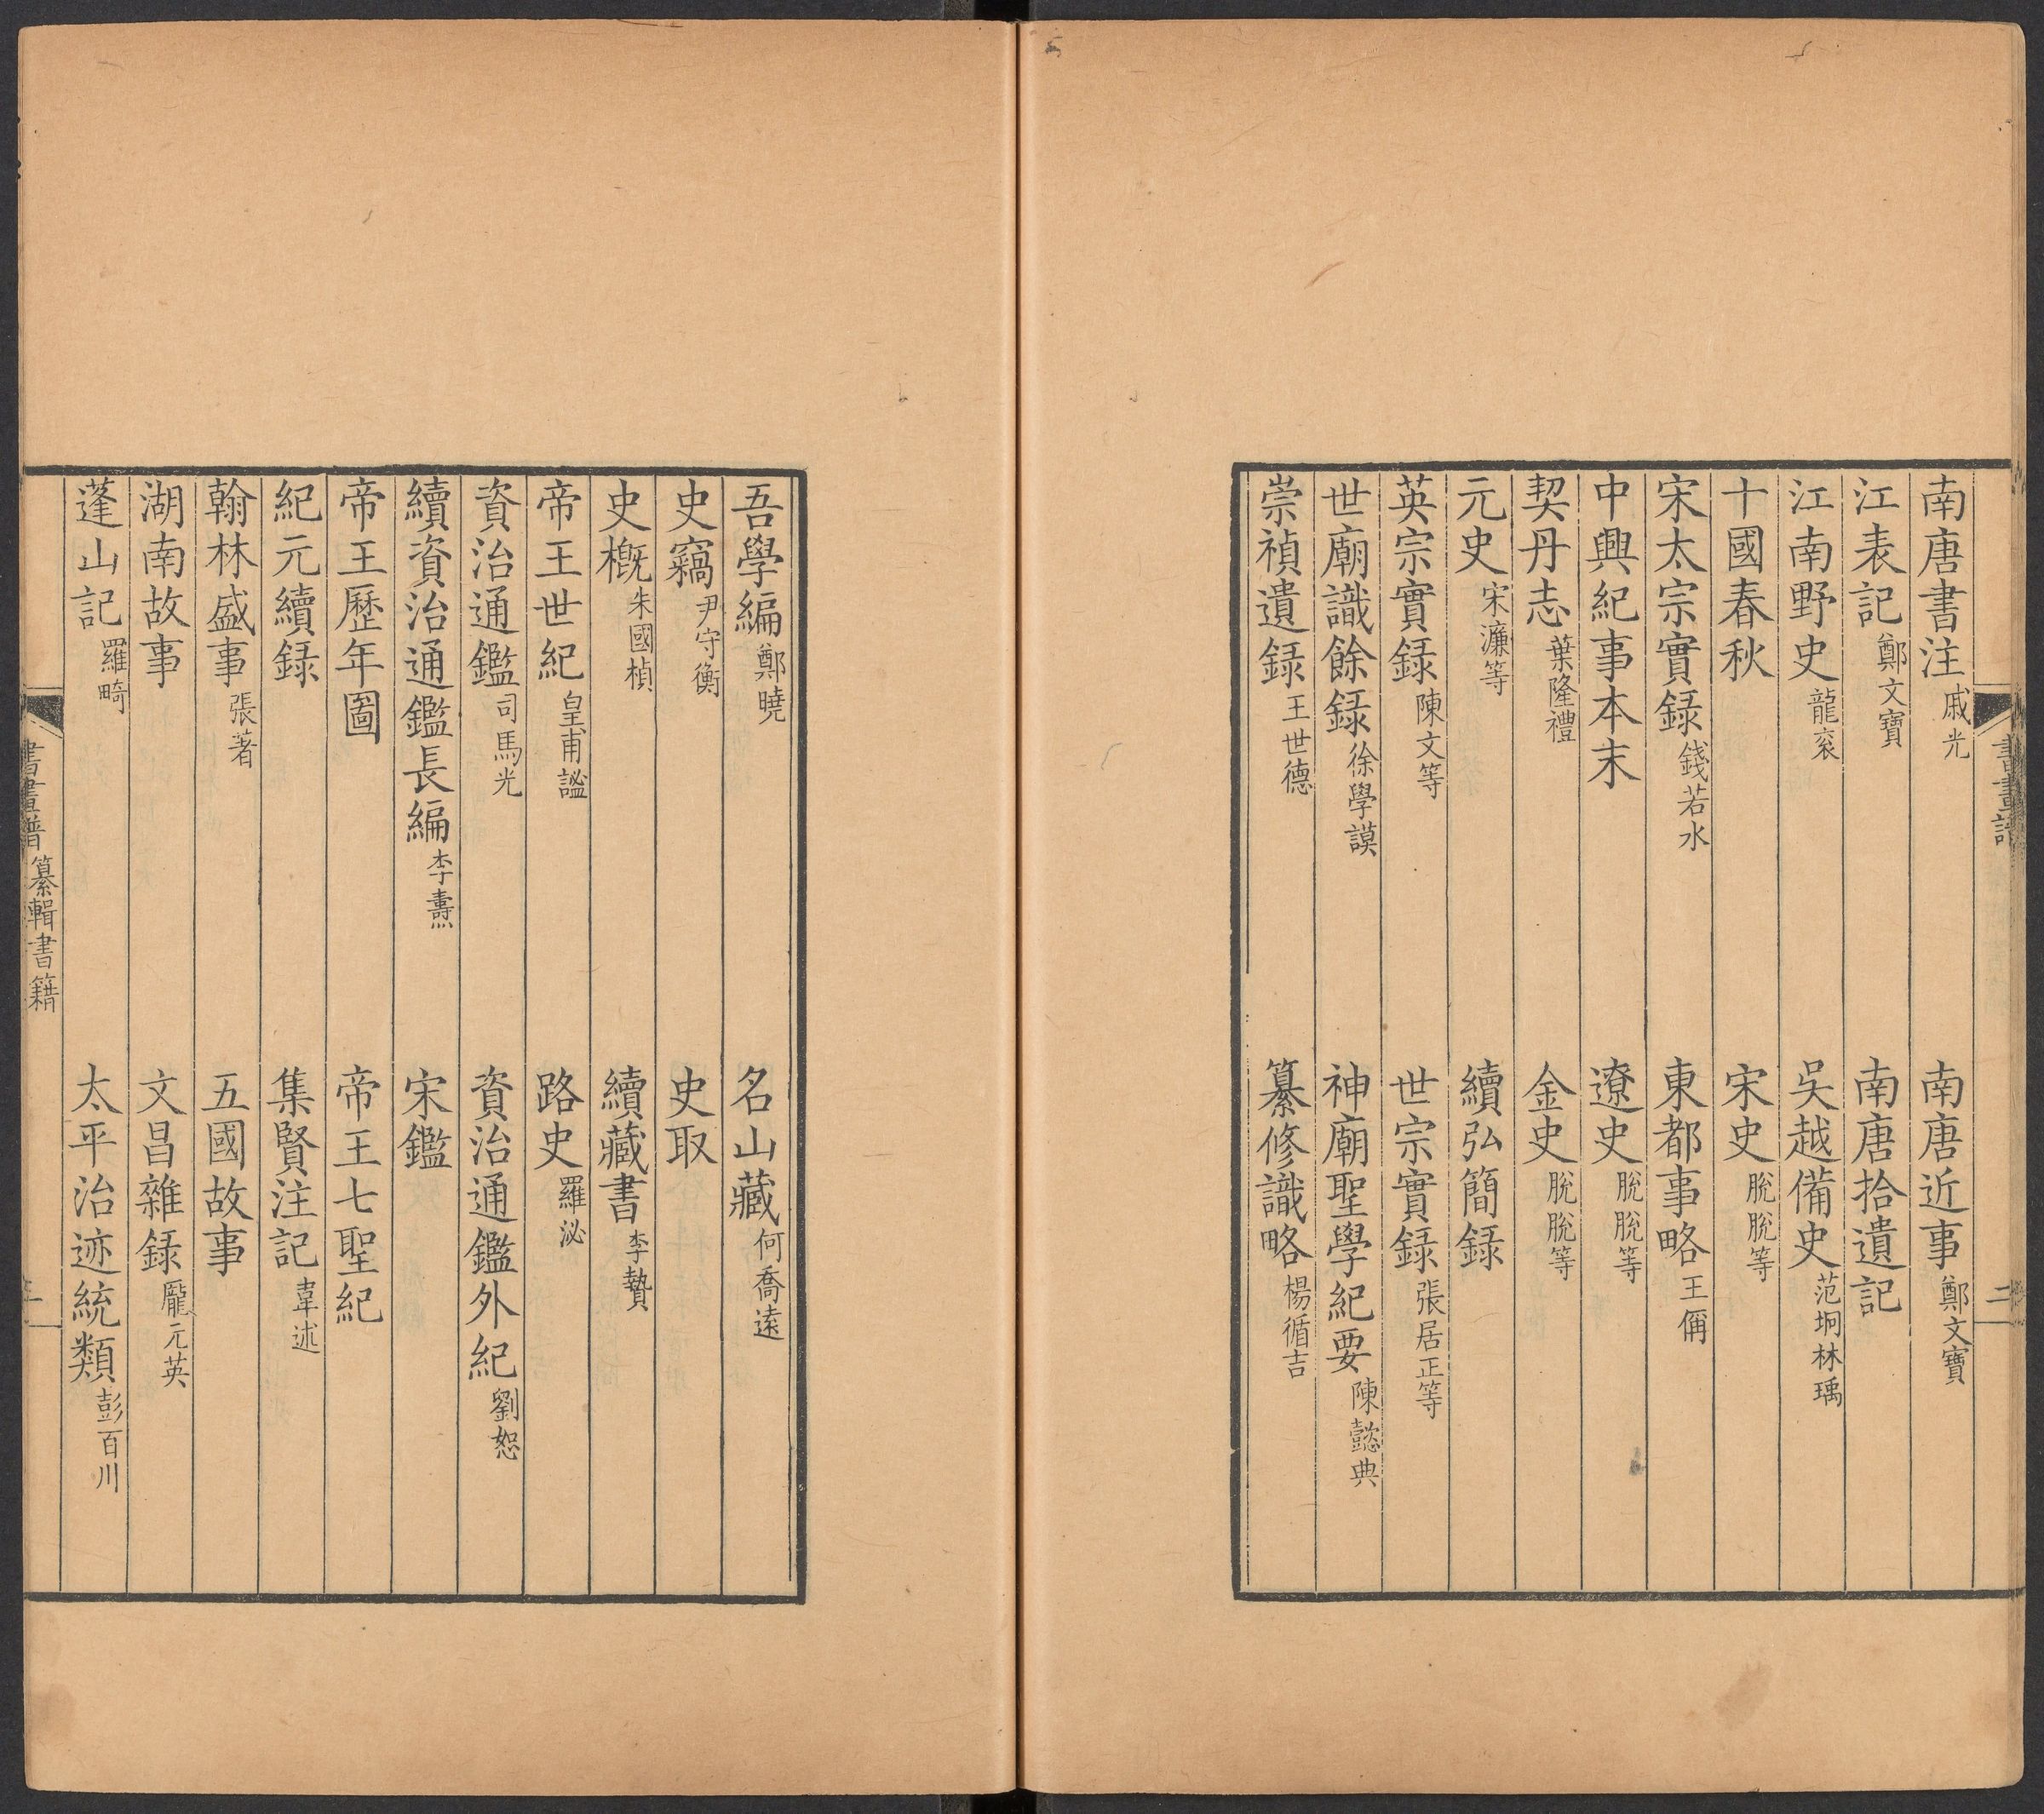 書畫譜 二
南唐書注 戚光 南唐近事 鄭文寶
江表記 鄭文寶 南唐拾遺記
江南野史 龍袞 吳越備史 范坰林瑀
十國春秋 宋史 脫脫等
宋太宗實録 錢若水 東都事略 王偁
中興紀事本末 遼史 脫脫等
契丹志 葉隆禮 金史 脫脫等
元史 宋濂等 續弘簡録
英宗實録 陳文等 世宗實録 張居正等
世廟識餘録 徐學謨 神廟聖學紀要 陳懿典
崇禎遺録 王世德 纂修識略 楊循吉
吾學編 鄭曉 名山藏 何喬遠
史竊 尹守衡 史取
史概 朱國楨 續藏書 李贄
帝王世紀 皇甫謐 路史 羅泌
資治通鑑 司馬光 資治通鑑外紀 劉恕
續資治通鑑長編 李燾 宋鑑
帝王歷年圖 帝王七聖紀
紀元續録 集賢注記 韋述
翰林盛事 張著 五國故事
湖南故事 文昌雜録 龐元英
蓬山記 羅畸 太平治迹統類 彭百川
書畫譜 纂輯書籍